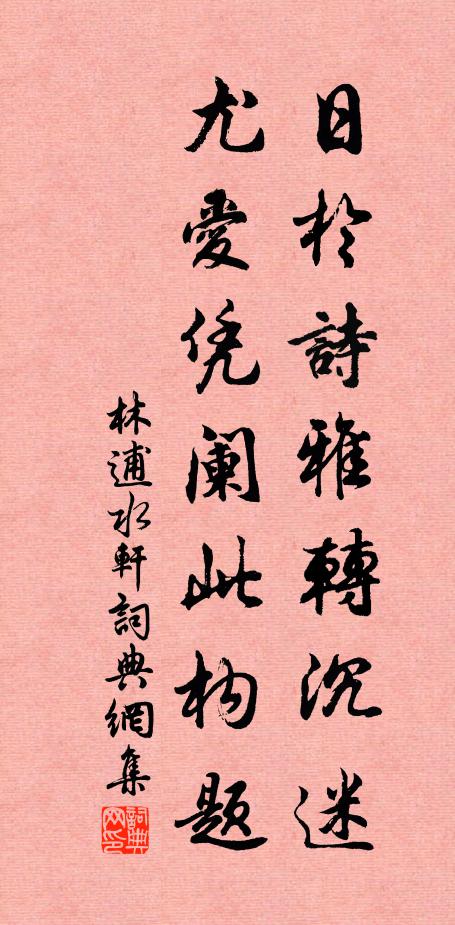 日於詩雅轉沉迷
尤愛凭阑此构題
林逋水軒詞典網集
詞典网印